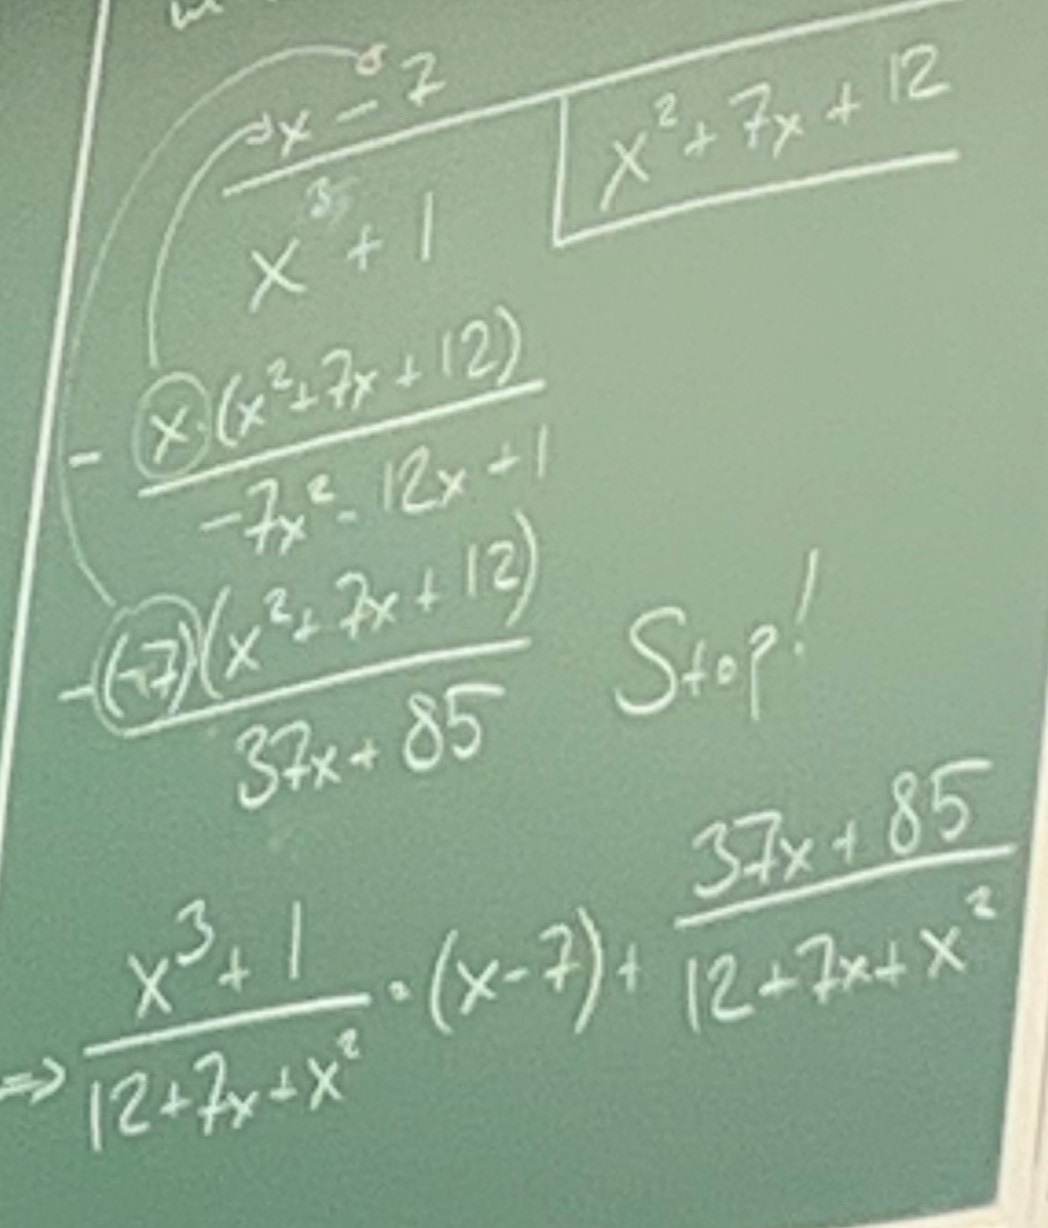 x - 7
x³ + 1 | x² + 7x + 12
- x·(x²+7x+12)
-7x² - 12x + 1
-(-7)(x²+7x+12)
37x + 85 Stop!
⇒ (x³+1)/(12+7x+x²) = (x-7) + (37x+85)/(12+7x+x²)